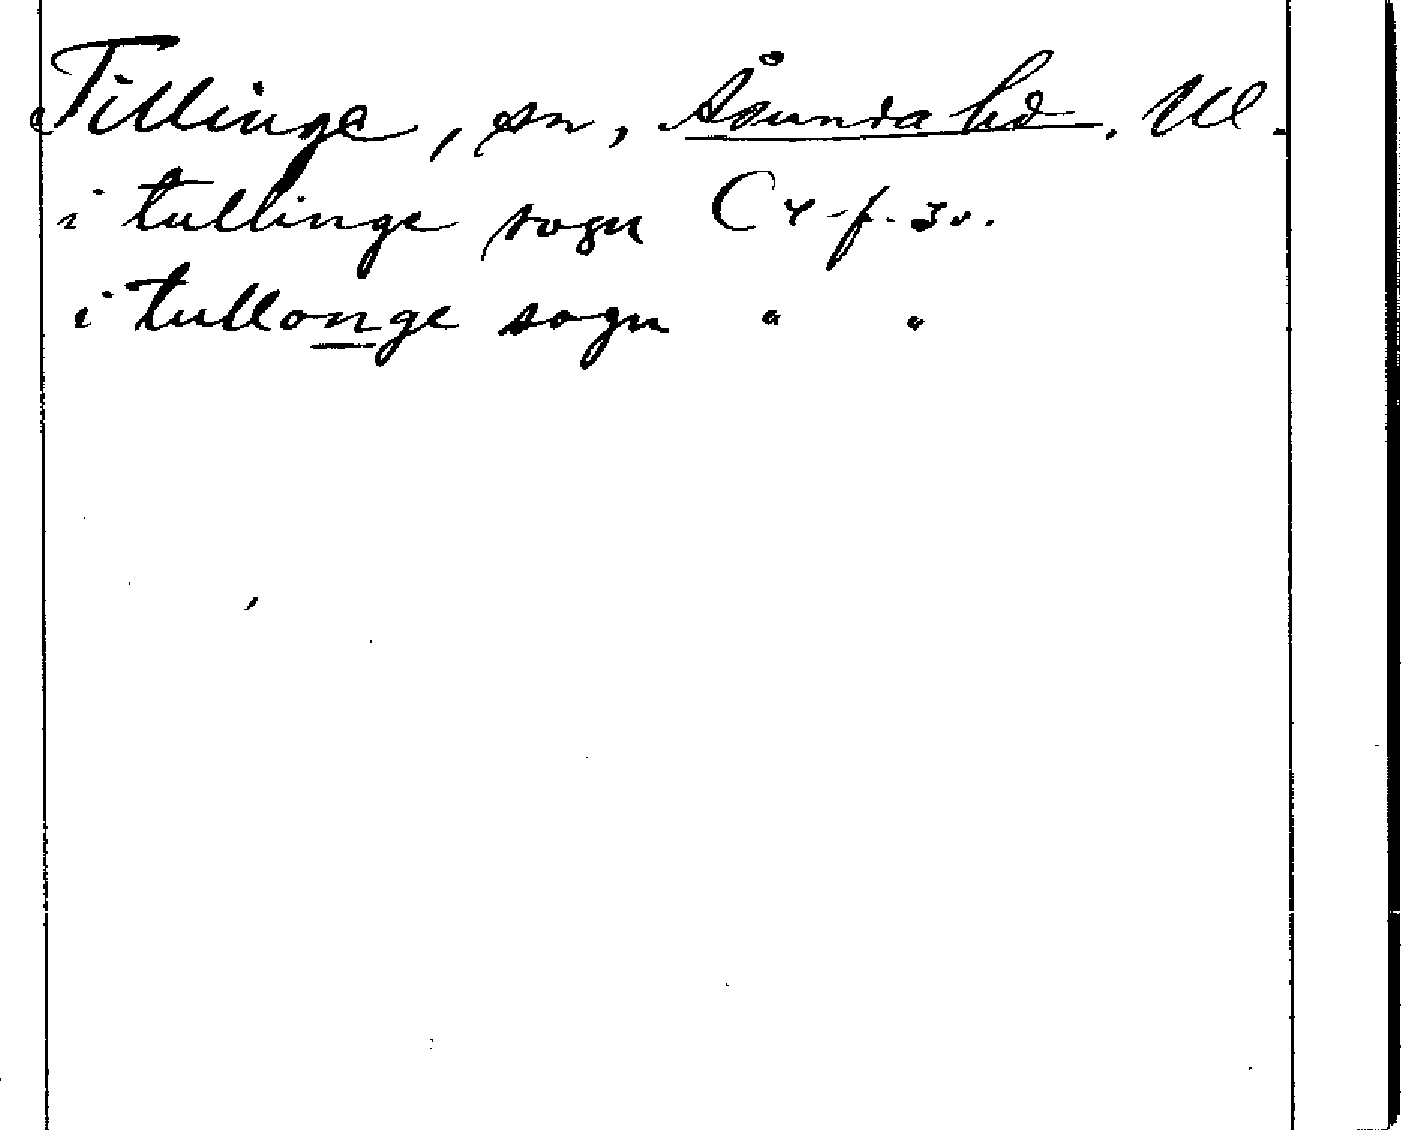 Tillinge, sn, Åsunda hd. Ul.
i tullinge sogn C 4 f. 3v.
i tullonge sogn " "